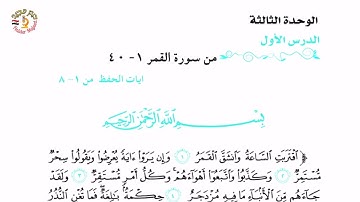 الوحدة الثالثة
الدرس الأول
من سورة القمر ١- ٤٠
ايات الحفظ من ١- ٨
بِسْمِ اللَّهِ الرَّحْمَٰنِ الرَّحِيمِ
﴿ ٱقْتَرَبَتِ ٱلسَّاعَةُ وَٱنشَقَّ ٱلْقَمَرُ ١ وَإِن يَرَوْا۟ ءَايَةً يُعْرِضُوا۟ وَيَقُولُوا۟ سِحْرٌ
مُّسْتَمِرٌّ ٢ وَكَذَّبُوا۟ وَٱتَّبَعُوٓا۟ أَهْوَآءَهُمْ وَكُلُّ أَمْرٍ مُّسْتَقِرٌّ ٣ وَلَقَدْ
جَآءَهُم مِّنَ ٱلْأَنۢبَآءِ مَا فِيهِ مُزْدَجَرٌ ٤ حِكْمَةٌۢ بَٰلِغَةٌ فَمَا تُغْنِ ٱلنُّذُرُ